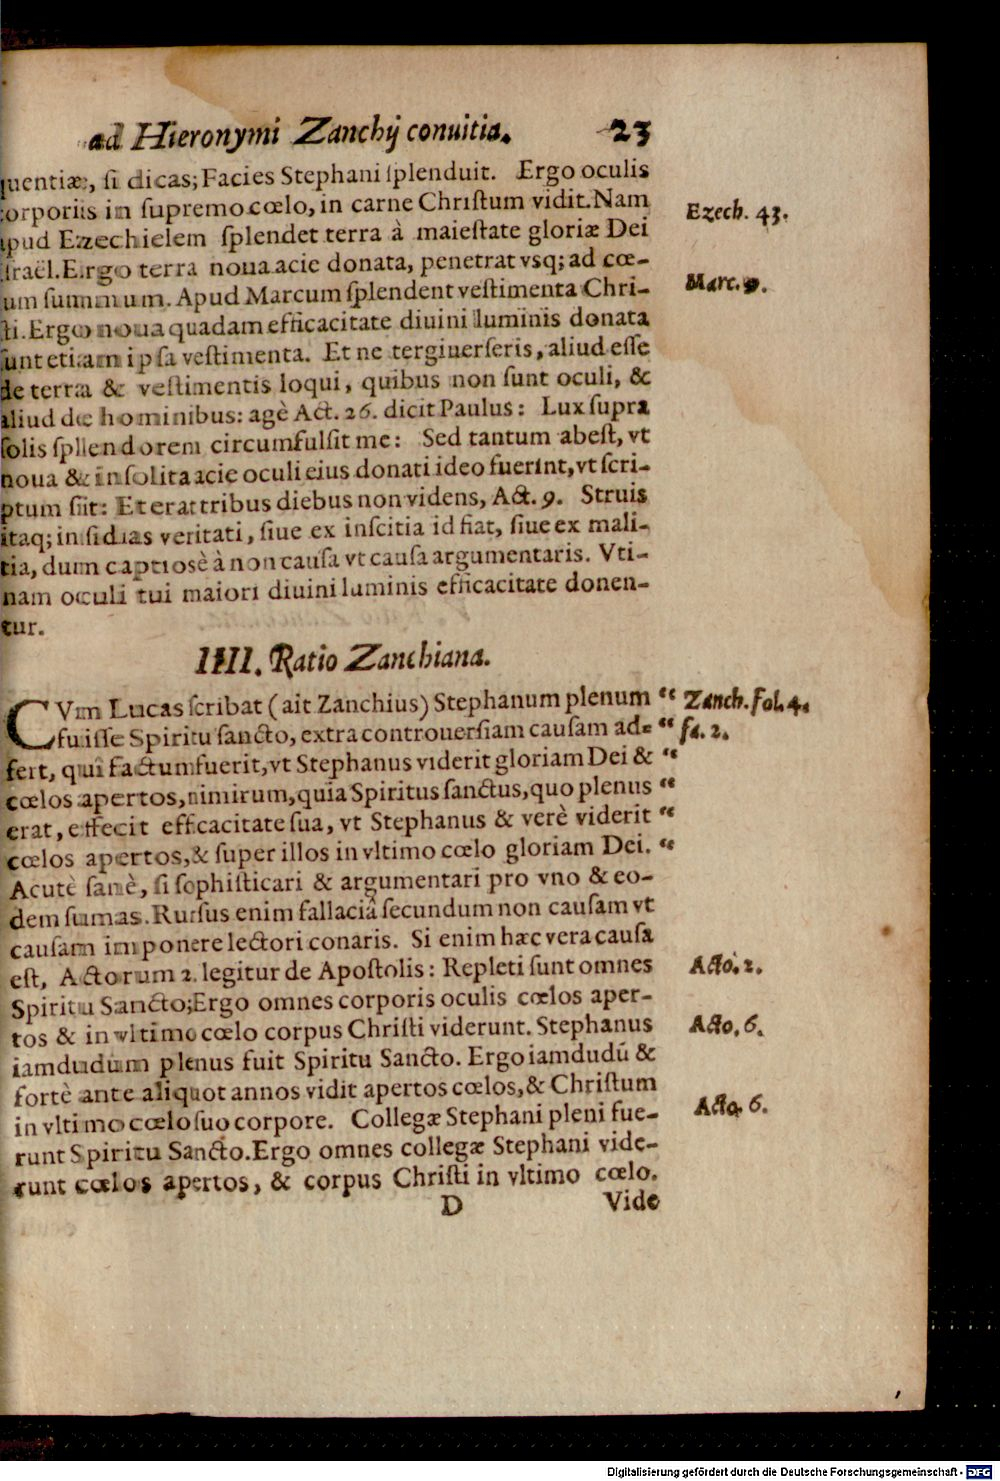 ad Hieronymi Zanchij conuitia. 23
quentiæ, si dicas; Facies Stephani splenduit. Ergo oculis
corporiis in supremo cœlo, in carne Christum vidit. Nam
apud Ezechielem splendet terra à maiestate gloriæ Dei
Israël. Ergo terra noua acie donata, penetrat vsq; ad cœ-
lum summum. Apud Marcum splendent vestimenta Chri-
sti. Ergo noua quadam efficacitate diuini luminis donata
sunt etiam ipsa vestimenta. Et ne tergiuerseris, aliud esse
de terra & vestimentis loqui, quibus non sunt oculi, &
aliud de hominibus: agè Act. 26. dicit Paulus: Lux supra
solis splendorem circumfulsit me: Sed tantum abest, vt
noua & insolita acie oculi eius donati ideo fuerint, vt scri-
ptum siit: Et erat tribus diebus non videns, Act. 9. Struis
itaq; insidias veritati, siue ex inscitia id fiat, siue ex mali-
tia, dum captiosè à non causa vt causa argumentaris. Vti-
nam oculi tui maiori diuini luminis efficacitate donen-
tur.
Ezech. 43.
Marc. 9.
IIII. Ratio Zanchiana.
CVm Lucas scribat (ait Zanchius) Stephanum plenum “
fuisse Spiritu sancto, extra controuersiam causam ad- “
fert, qui factum fuerit, vt Stephanus viderit gloriam Dei & “
cœlos apertos, nimirum, quia Spiritus sanctus, quo plenus “
erat, effecit efficacitate sua, vt Stephanus & verè viderit “
cœlos apertos, & super illos in vltimo cœlo gloriam Dei. “
Acutè sanè, si sophisticari & argumentari pro vno & eo-
dem sumas. Rursus enim fallaciâ secundum non causam vt
causam imponere lectori conaris. Si enim hæc vera causa
est, Actorum 2. legitur de Apostolis: Repleti sunt omnes
Spiritu Sancto; Ergo omnes corporis oculis cœlos aper-
tos & in vltimo cœlo corpus Christi viderunt. Stephanus
iamdudum plenus fuit Spiritu Sancto. Ergo iamdudū &
fortè ante aliquot annos vidit apertos cœlos, & Christum
in vltimo cœlo suo corpore. Collegæ Stephani pleni fue-
runt Spiritu Sancto. Ergo omnes collegæ Stephani vide-
runt cœlos apertos, & corpus Christi in vltimo cœlo.
Zanch. fol. 4.
fa. 2.
Acto. 2.
Acto. 6.
Acto. 6.
D Vide
Digitalisierung gefördert durch die Deutsche Forschungsgemeinschaft - DFG